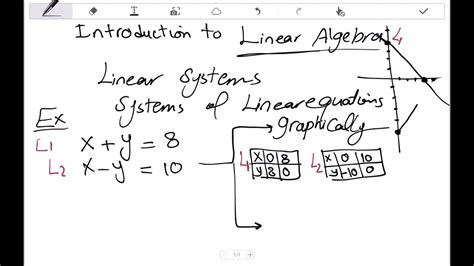 Introduction to Linear Algebra
Linear Systems
Systems of Linear equations
graphically
Ex
L1 x + y = 8
L2 x - y = 10
L1
x 0 8
y 8 0
L2
x 0 10
y -10 0
L1
1/1